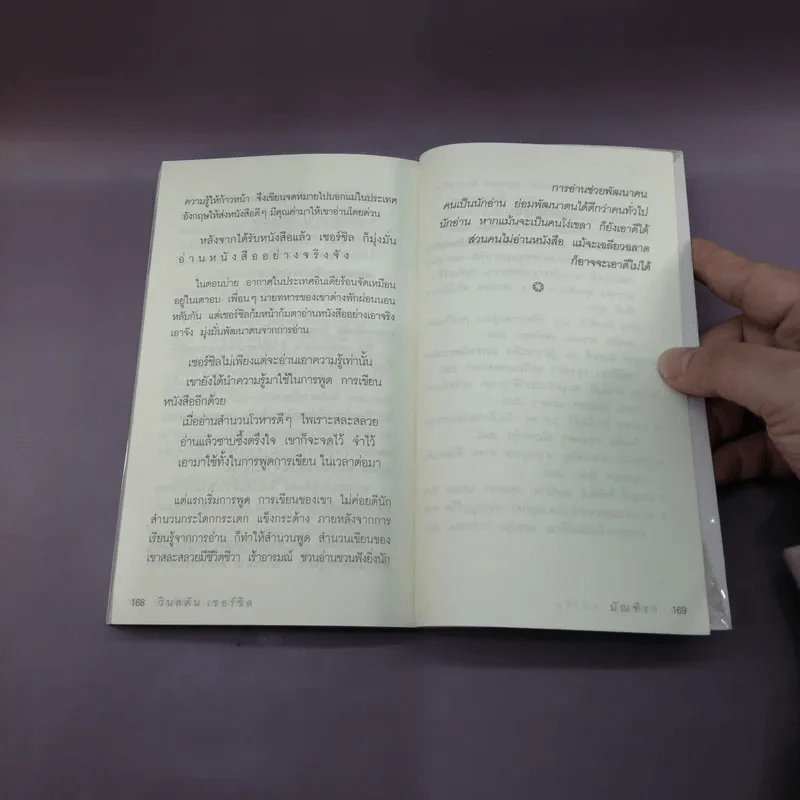 ความรู้ให้ก้าวหน้า จึงเขียนจดหมายไปบอกแม่ในประเทศ
อังกฤษให้ส่งหนังสือดีๆ มีคุณค่ามาให้เขาอ่านโดยด่วน
หลังจากได้รับหนังสือแล้ว เชอร์ชิล ก็มุ่งมั่น
อ่านหนังสืออย่างจริงจัง
ในตอนบ่าย อากาศในประเทศอินเดียร้อนจัดเหมือน
อยู่ในเตาอบ เพื่อนๆ นายทหารของเขาต่างพักผ่อนนอน
หลับกัน แต่เชอร์ชิลก้มหน้าก้มตาอ่านหนังสืออย่างเอาจริง
เอาจัง มุ่งมั่นพัฒนาตนจากการอ่าน
เชอร์ชิลไม่เพียงแต่จะอ่านเอาความรู้เท่านั้น
เขายังได้นำความรู้มาใช้ในการพูด การเขียน
หนังสืออีกด้วย
เมื่ออ่านสำนวนโวหารดีๆ ไพเราะสละสลวย
อ่านแล้วซาบซึ้งตรึงใจ เขาก็จะจดไว้ จำไว้
เอามาใช้ทั้งในการพูดการเขียน ในเวลาต่อมา
แต่แรกเริ่มการพูด การเขียนของเขา ไม่ค่อยดีนัก
สำนวนกระโดกกระเดก แข็งกระด้าง ภายหลังจากการ
เรียนรู้จากการอ่าน ก็ทำให้สำนวนพูด สำนวนเขียนของ
เขาสละสลวยมีชีวิตชีวา เร้าอารมณ์ ชวนอ่านชวนฟังยิ่งนัก
168 วินสตัน เชอร์ชิล
การอ่านช่วยพัฒนาคน
คนเป็นนักอ่าน ย่อมพัฒนาตนได้ดีกว่าคนทั่วไป
นักอ่าน หากแม้นจะเป็นคนโง่เขลา ก็ยังเอาดีได้
ส่วนคนไม่อ่านหนังสือ แม้จะเฉลียวฉลาด
ก็อาจจะเอาดีไม่ได้
169